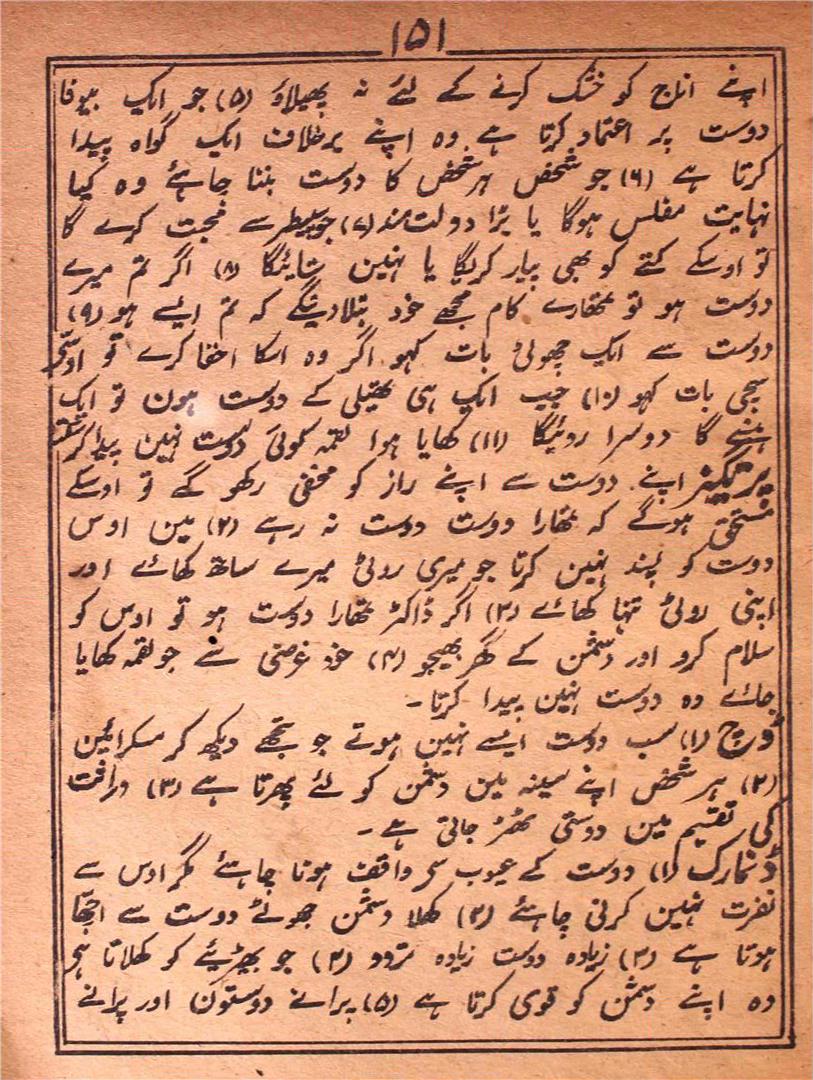 ۱۵۱
اپنے اناج کو خشک کرنے کے لئے نہ پھیلاؤ (۵) جو ایک بیوفا
دوست پر اعتماد کرتا ہے وہ اپنے برخلاف ایک گواہ پیدا
کرتا ہے (۶) جو شخص ہر شخص کا دوست بننا چاہئے وہ کیا
نہایت مفلس ہوگا یا بڑا دولت مند (۷) جو سے محبت کرے گا
تو اوسکے کتے کو بھی پیار کریگا یا نہین ستائیگا (۸) اگر تم میرے
دوست ہو تو تمھارے کام مجھے خود بتلادینگے کہ تم ایسے ہو (۹)
دوست سے ایک جھوٹی بات کہو اگر وہ اسکا اخفا کرے تو
سچی بات کہو (۱۰) جب ایک ہی تھیلی کے دوست ہون تو ایک
ہنسے گا دوسرا روئیگا (۱۱) کھایا ہوا لقمہ کوئی دوست نہین پیدا کر سکتا
پرتگیز اپنے دوست سے اپنے راز کو مخفی رکھو گے تو اوسکے
مستحق ہوگے کہ تمھارا دوست دوست نہ رہے (۲) مین اوس
دوست کو پسند نہین کرتا جو میری روٹی میرے ساتھ کھائے اور
اپنی روٹی تنہا کھائے (۳) اگر ڈاکٹر تمھارا دوست ہو تو اوس کو
سلام کرو اور دشمن کے گھر بھیجو (۴) خود غرضی سے جو لقمہ کھایا
جائے وہ دوست نہین پیدا کرتا۔
ڈچ (۱) سب دوست ایسے نہین ہوتے جو تجھے دیکھ کر مسکرائین
(۲) ہر شخص اپنے سینہ مین دشمن کو لئے پھرتا ہے (۳) وراثت
کی تقسیم مین دوستی ٹھٹر جاتی ہے۔
ڈنمارک (۱) دوست کے عیوب سے واقف ہونا چاہئے مگر اوس سے
نفرت نہین کرنی چاہئے (۲) کھلا دشمن جھوٹے دوست سے اچھا
ہوتا ہے (۳) زیادہ دوست زیادہ تردد (۴) جو بھیڑیئے کو کھلاتا ہے
وہ اپنے دشمن کو قوی کرتا ہے (۵) پرانے دوستون اور پرانے